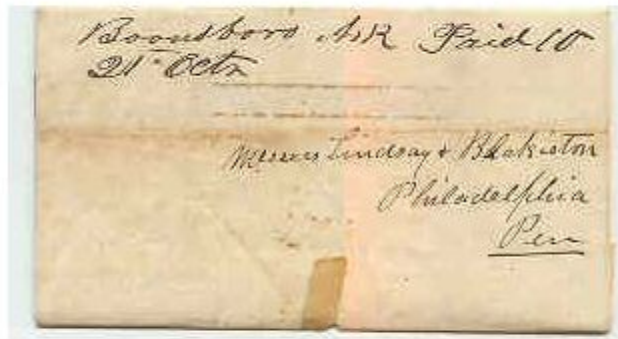 Boonsboro Ark Paid 10
21st Octr
Messrs Lindsay & Blakiston
Philadelphia
Pen